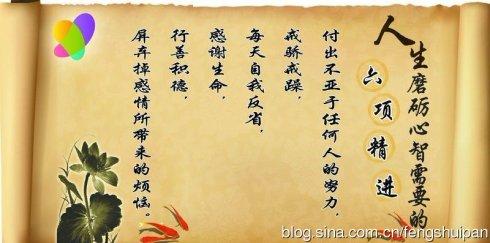 人生磨砺心智需要的
六项精进
付出不亚于任何人的努力，
戒骄戒躁，
每天自我反省，
感谢生命，
行善积德，
屏弃掉感情所带来的烦恼。
blog.sina.com.cn/fengshuipan